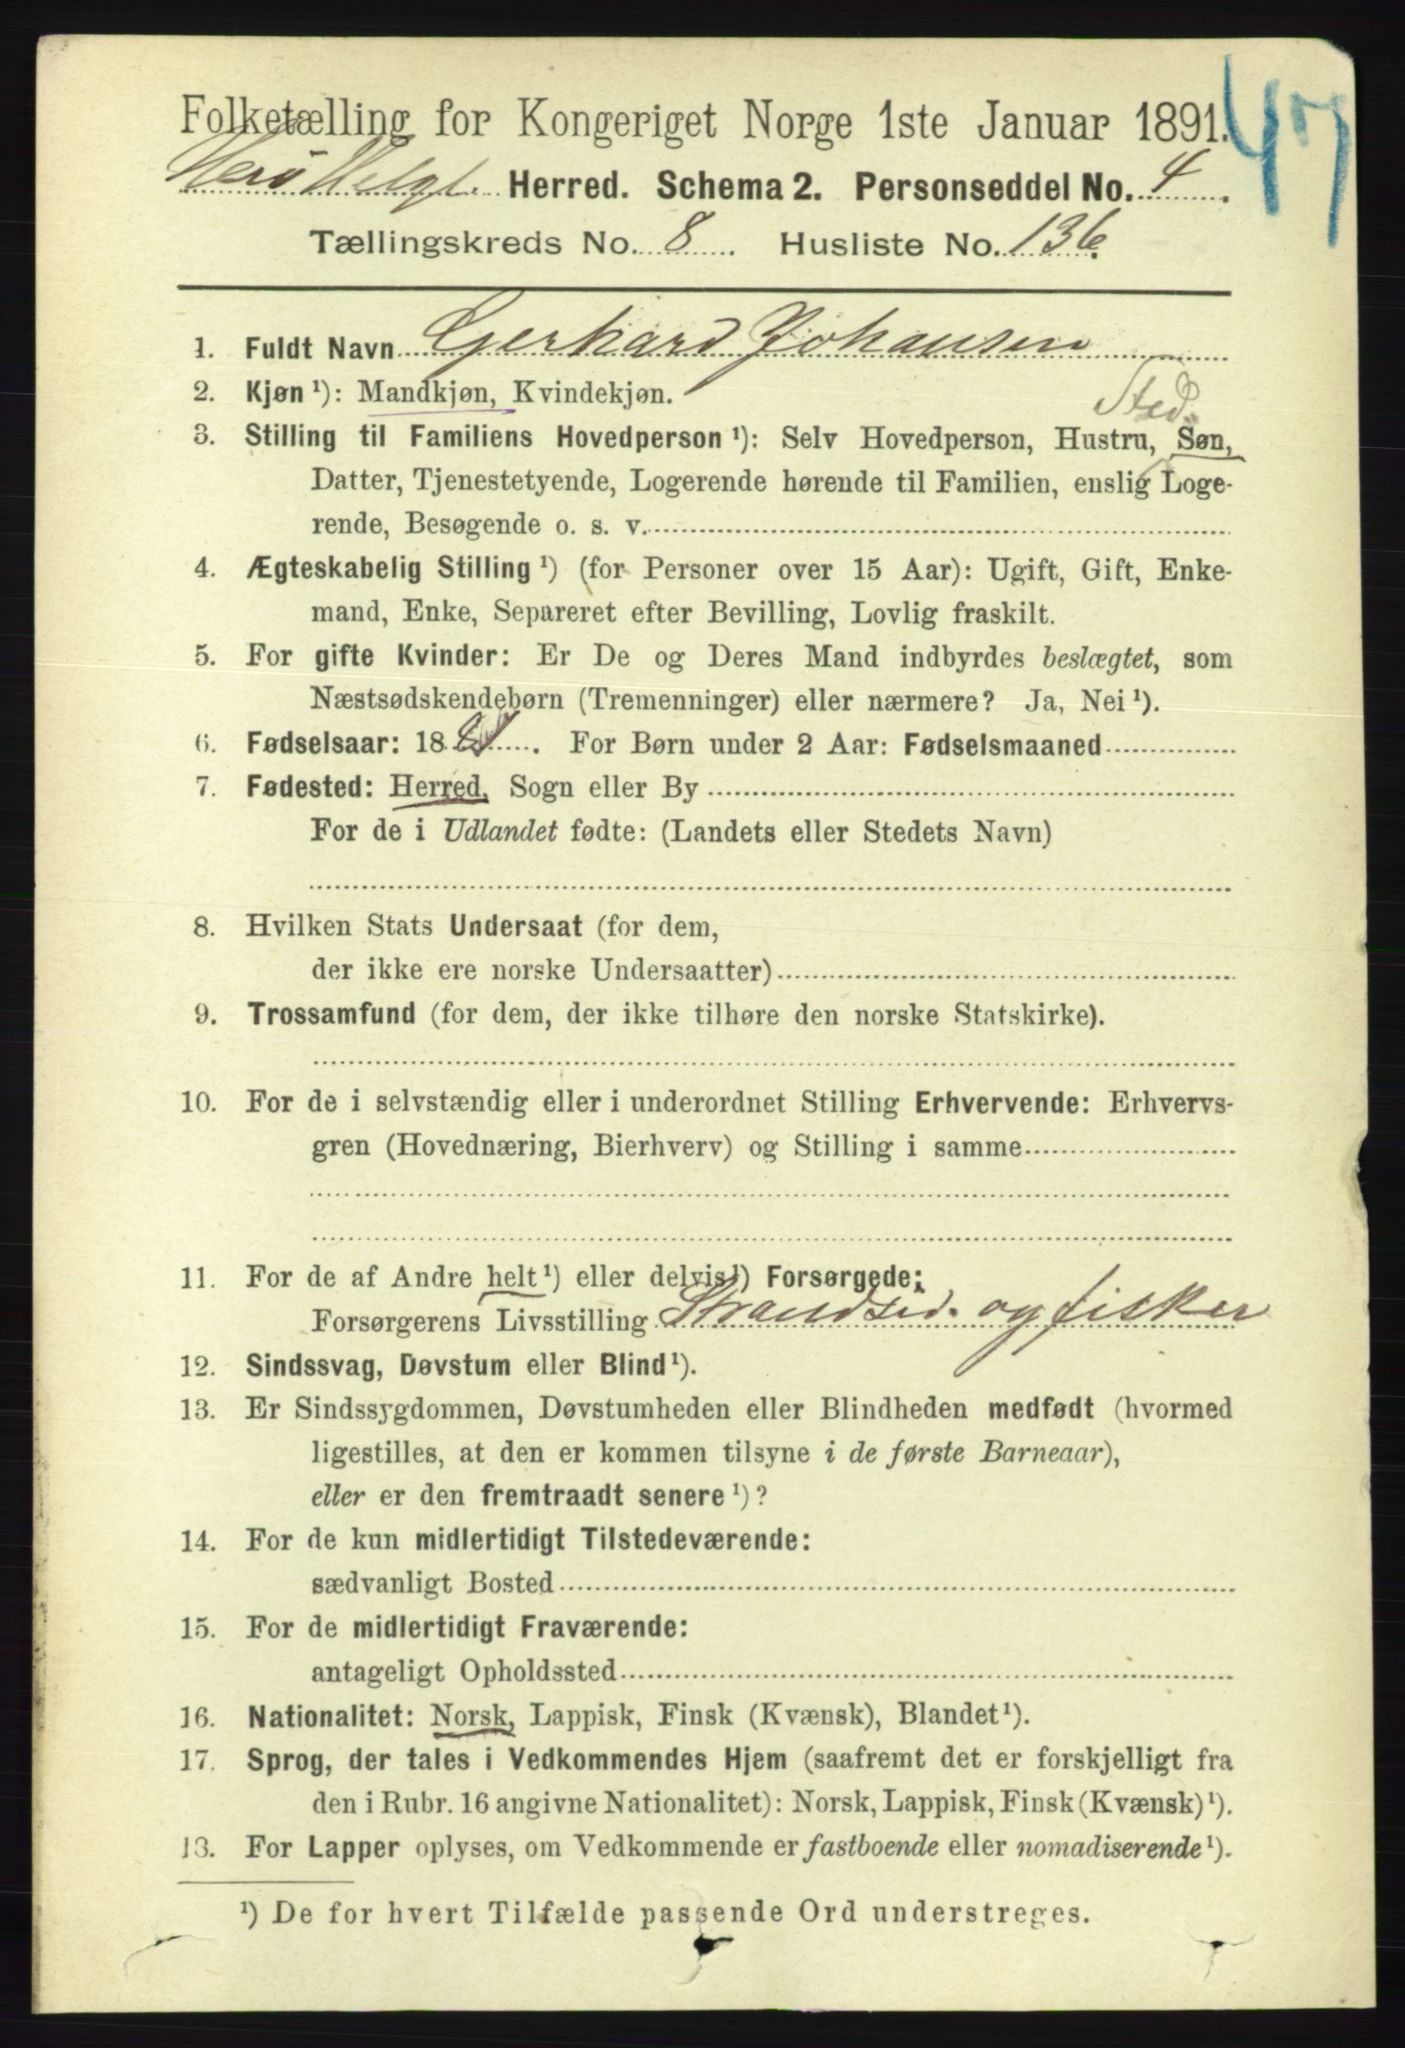 47
Folketælling for Kongeriget Norge 1ste Januar 1891.
Herø Helgl. Herred. Schema 2. Personseddel No. 4.
Tællingskreds No. 8. Husliste No. 136.
1. Fuldt Navn Gerhard Johansen
2. Kjøn ¹): Mandkjøn, Kvindekjøn.
Sted.
3. Stilling til Familiens Hovedperson ¹): Selv Hovedperson, Hustru, Søn,
Datter, Tjenestetyende, Logerende hørende til Familien, enslig Loge-
rende, Besøgende o. s. v.
4. Ægteskabelig Stilling ¹) (for Personer over 15 Aar): Ugift, Gift, Enke-
mand, Enke, Separeret efter Bevilling, Lovlig fraskilt.
5. For gifte Kvinder: Er De og Deres Mand indbyrdes beslægtet, som
Næstsødskendebørn (Tremenninger) eller nærmere? Ja, Nei ¹).
6. Fødselsaar: 18. For Børn under 2 Aar: Fødselsmaaned
7. Fødested: Herred, Sogn eller By
For de i Udlandet fødte: (Landets eller Stedets Navn)
8. Hvilken Stats Undersaat (for dem,
der ikke ere norske Undersaatter)
9. Trossamfund (for dem, der ikke tilhøre den norske Statskirke).
10. For de i selvstændig eller i underordnet Stilling Erhvervende: Erhvervs-
gren (Hovednæring, Bierhverv) og Stilling i samme
11. For de af Andre helt ¹) eller delvis ¹) Forsørgede:
Forsørgerens Livsstilling Strandsid. og fisker
12. Sindssvag, Døvstum eller Blind ¹).
13. Er Sindssygdommen, Døvstumheden eller Blindheden medfødt (hvormed
ligestilles, at den er kommen tilsyne i de første Barneaar),
eller er den fremtraadt senere ¹)?
14. For de kun midlertidigt Tilstedeværende:
sædvanligt Bosted
15. For de midlertidigt Fraværende:
antageligt Opholdssted
16. Nationalitet: Norsk, Lappisk, Finsk (Kvænsk), Blandet ¹).
17. Sprog, der tales i Vedkommendes Hjem (saafremt det er forskjelligt fra
den i Rubr. 16 angivne Nationalitet): Norsk, Lappisk, Finsk (Kvænsk) ¹).
13. For Lapper oplyses, om Vedkommende er fastboende eller nomadiserende ¹).
¹) De for hvert Tilfælde passende Ord understreges.